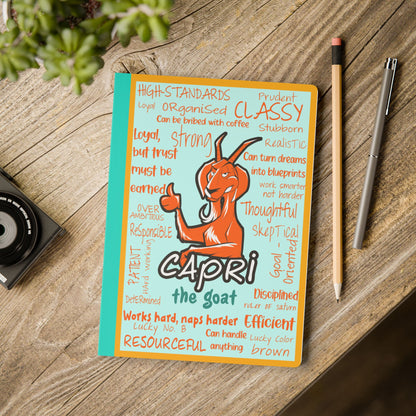 HIGH-STANDARDS
Prudent
Loyal ORganiSed CLASSY
Can be bribed with coffee
Stubborn
Loyal,
but trust
must be
earned
strong
ReaListic
Can turn dreams
into blueprints
work smarter
not harder
OVER
AMBitious
Thoughtful
ResponsiBLE
SkepTical
PATIENT
Hard working
Goal-
Oriented
CAPRI
the goat
DeteRMined
Disciplined
RULER OF SATURN
Works hard, naps harder
Efficient
Lucky No. 8
Can handle
anything.
Lucky Color
brown
RESOURCEFUL